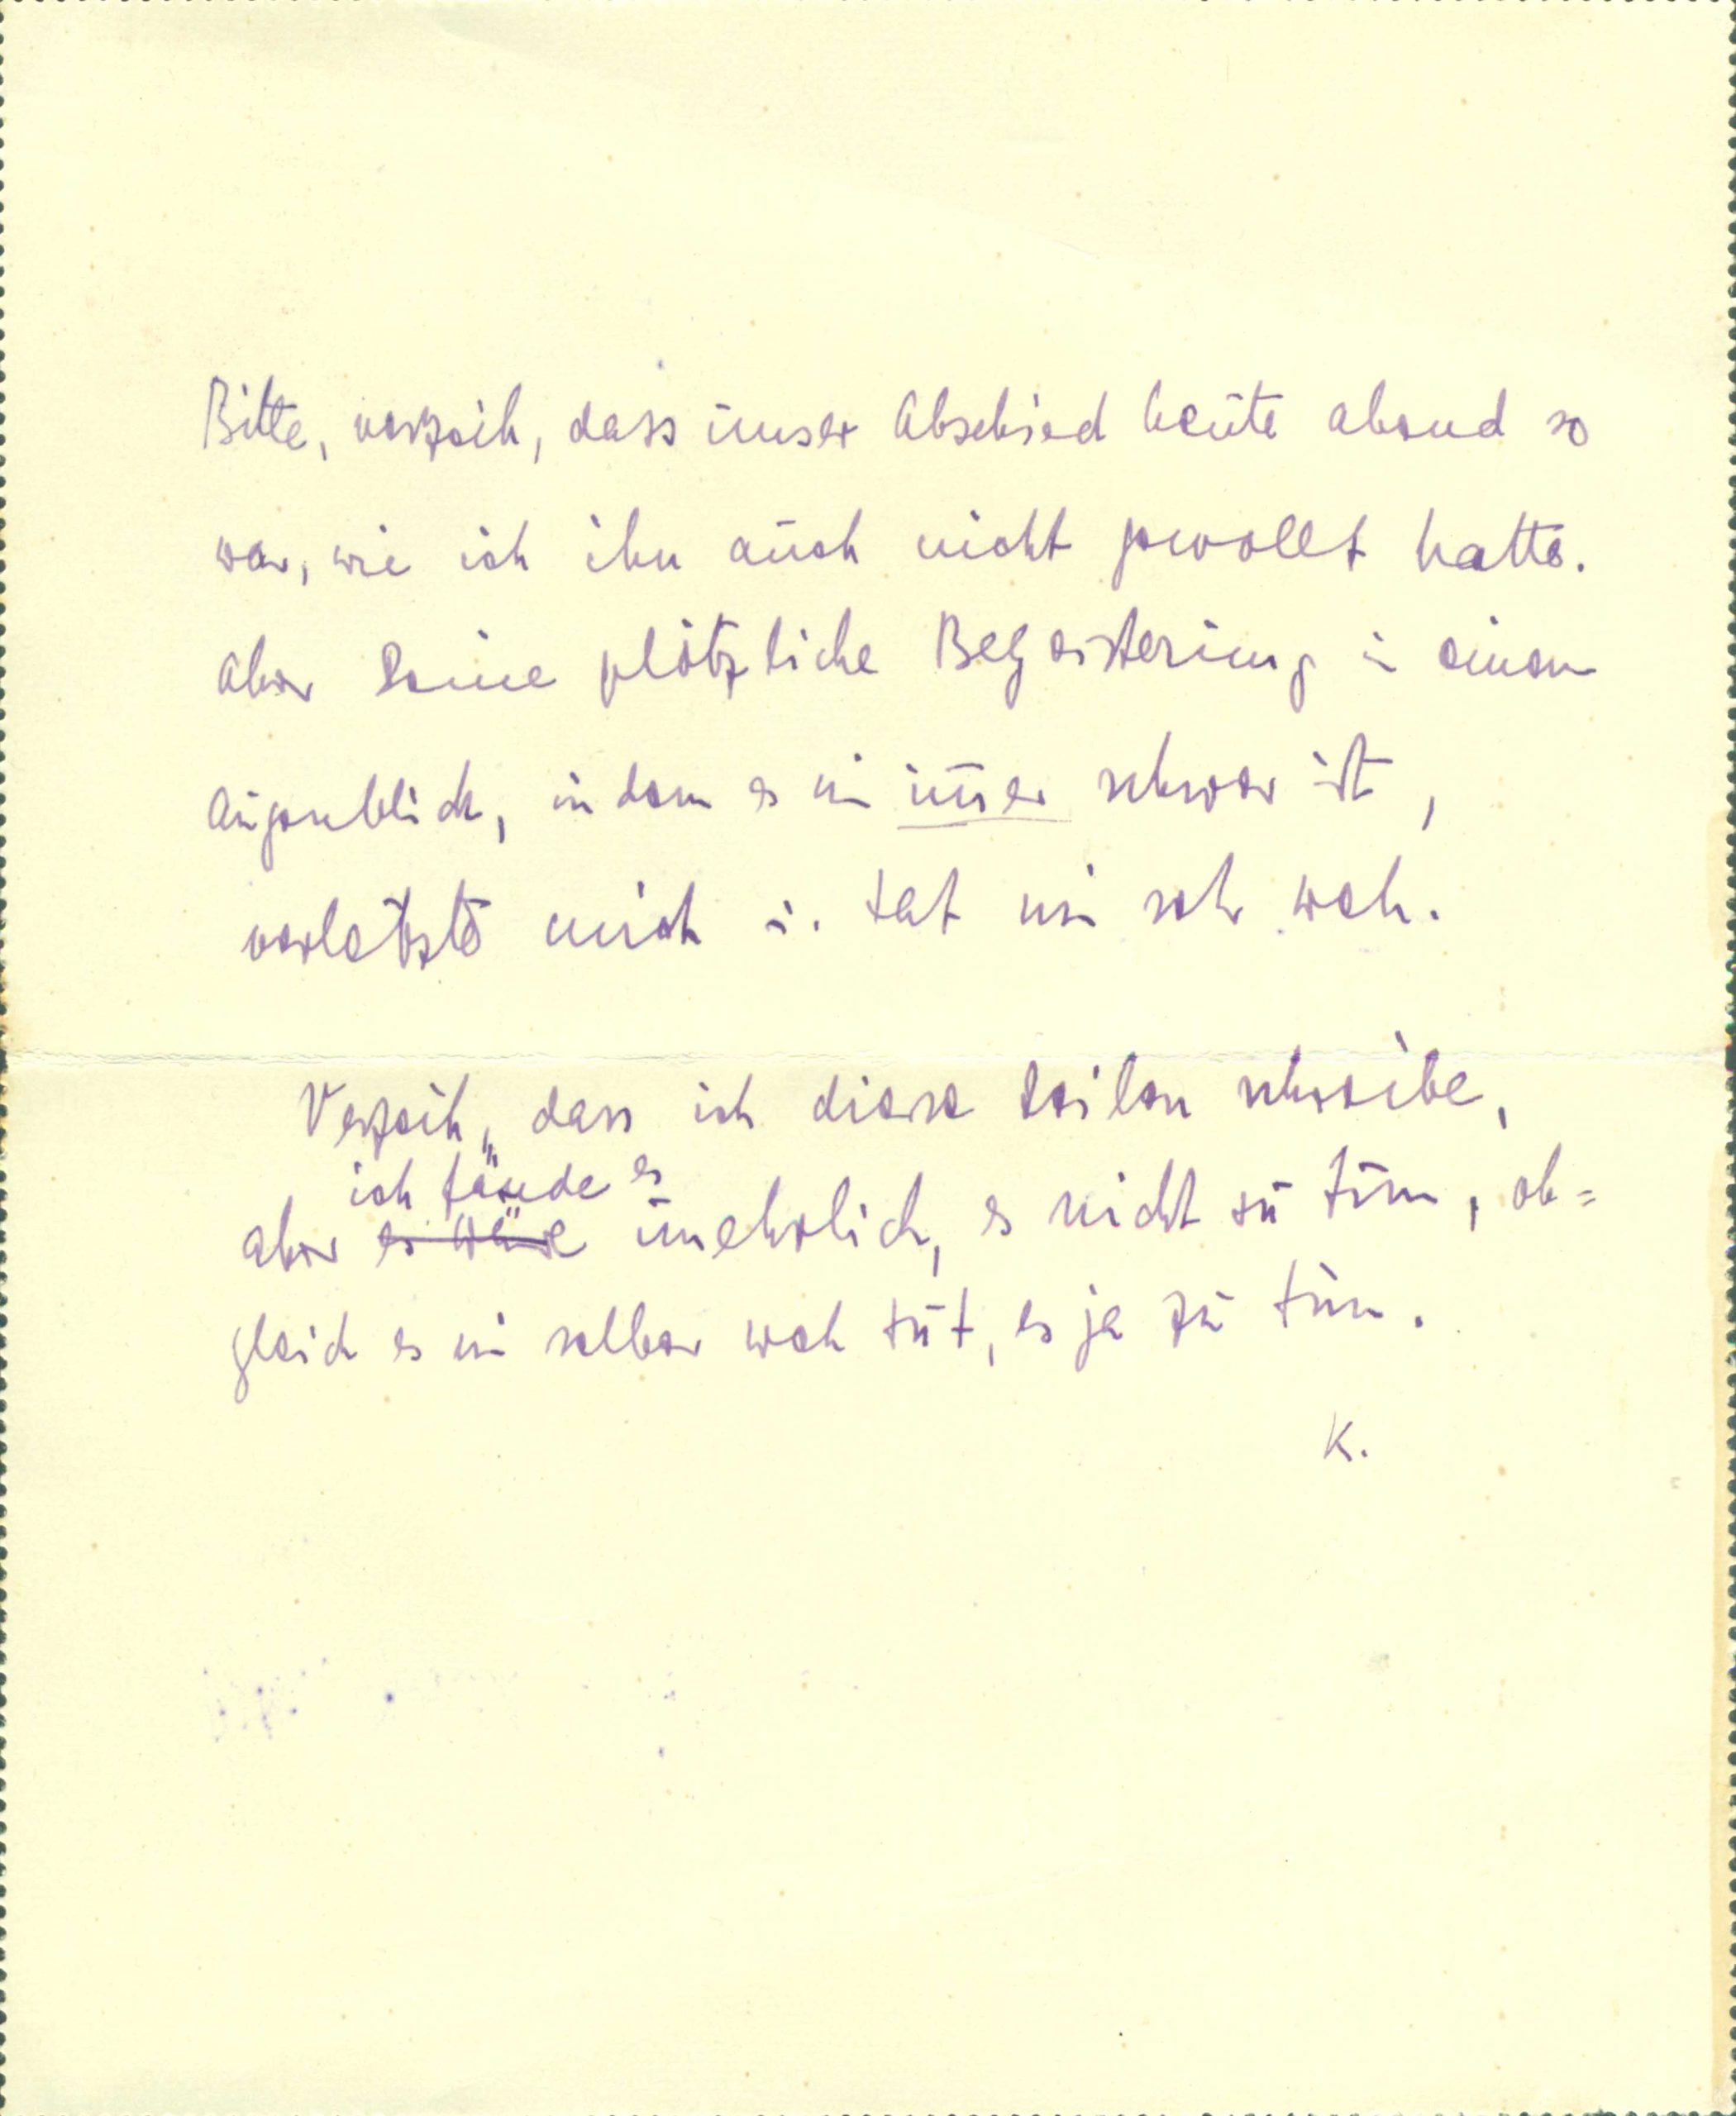 Bitte, verzeih, dass unser Abschied heute abend so
war, wie ich ihn auch nicht gewollt hatte.
Aber Deine plötzliche Begeisterung in einem
Augenblick, in dem es mir immer schwer ist,
verletzte mich u. tat mir sehr weh.
Verzeih, dass ich diese Zeilen schreibe,
ich fände es
aber es wäre unehrlich, es nicht zu tun, ob=
gleich es mir selber weh tut, es ja zu tun.
K.